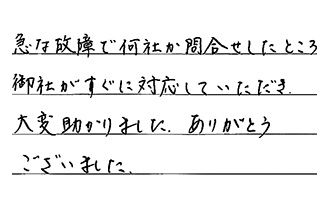 急な故障で何社か問合せしたところ
御社がすぐに対応していただき.
大変助かりました. ありがとう
ございました.